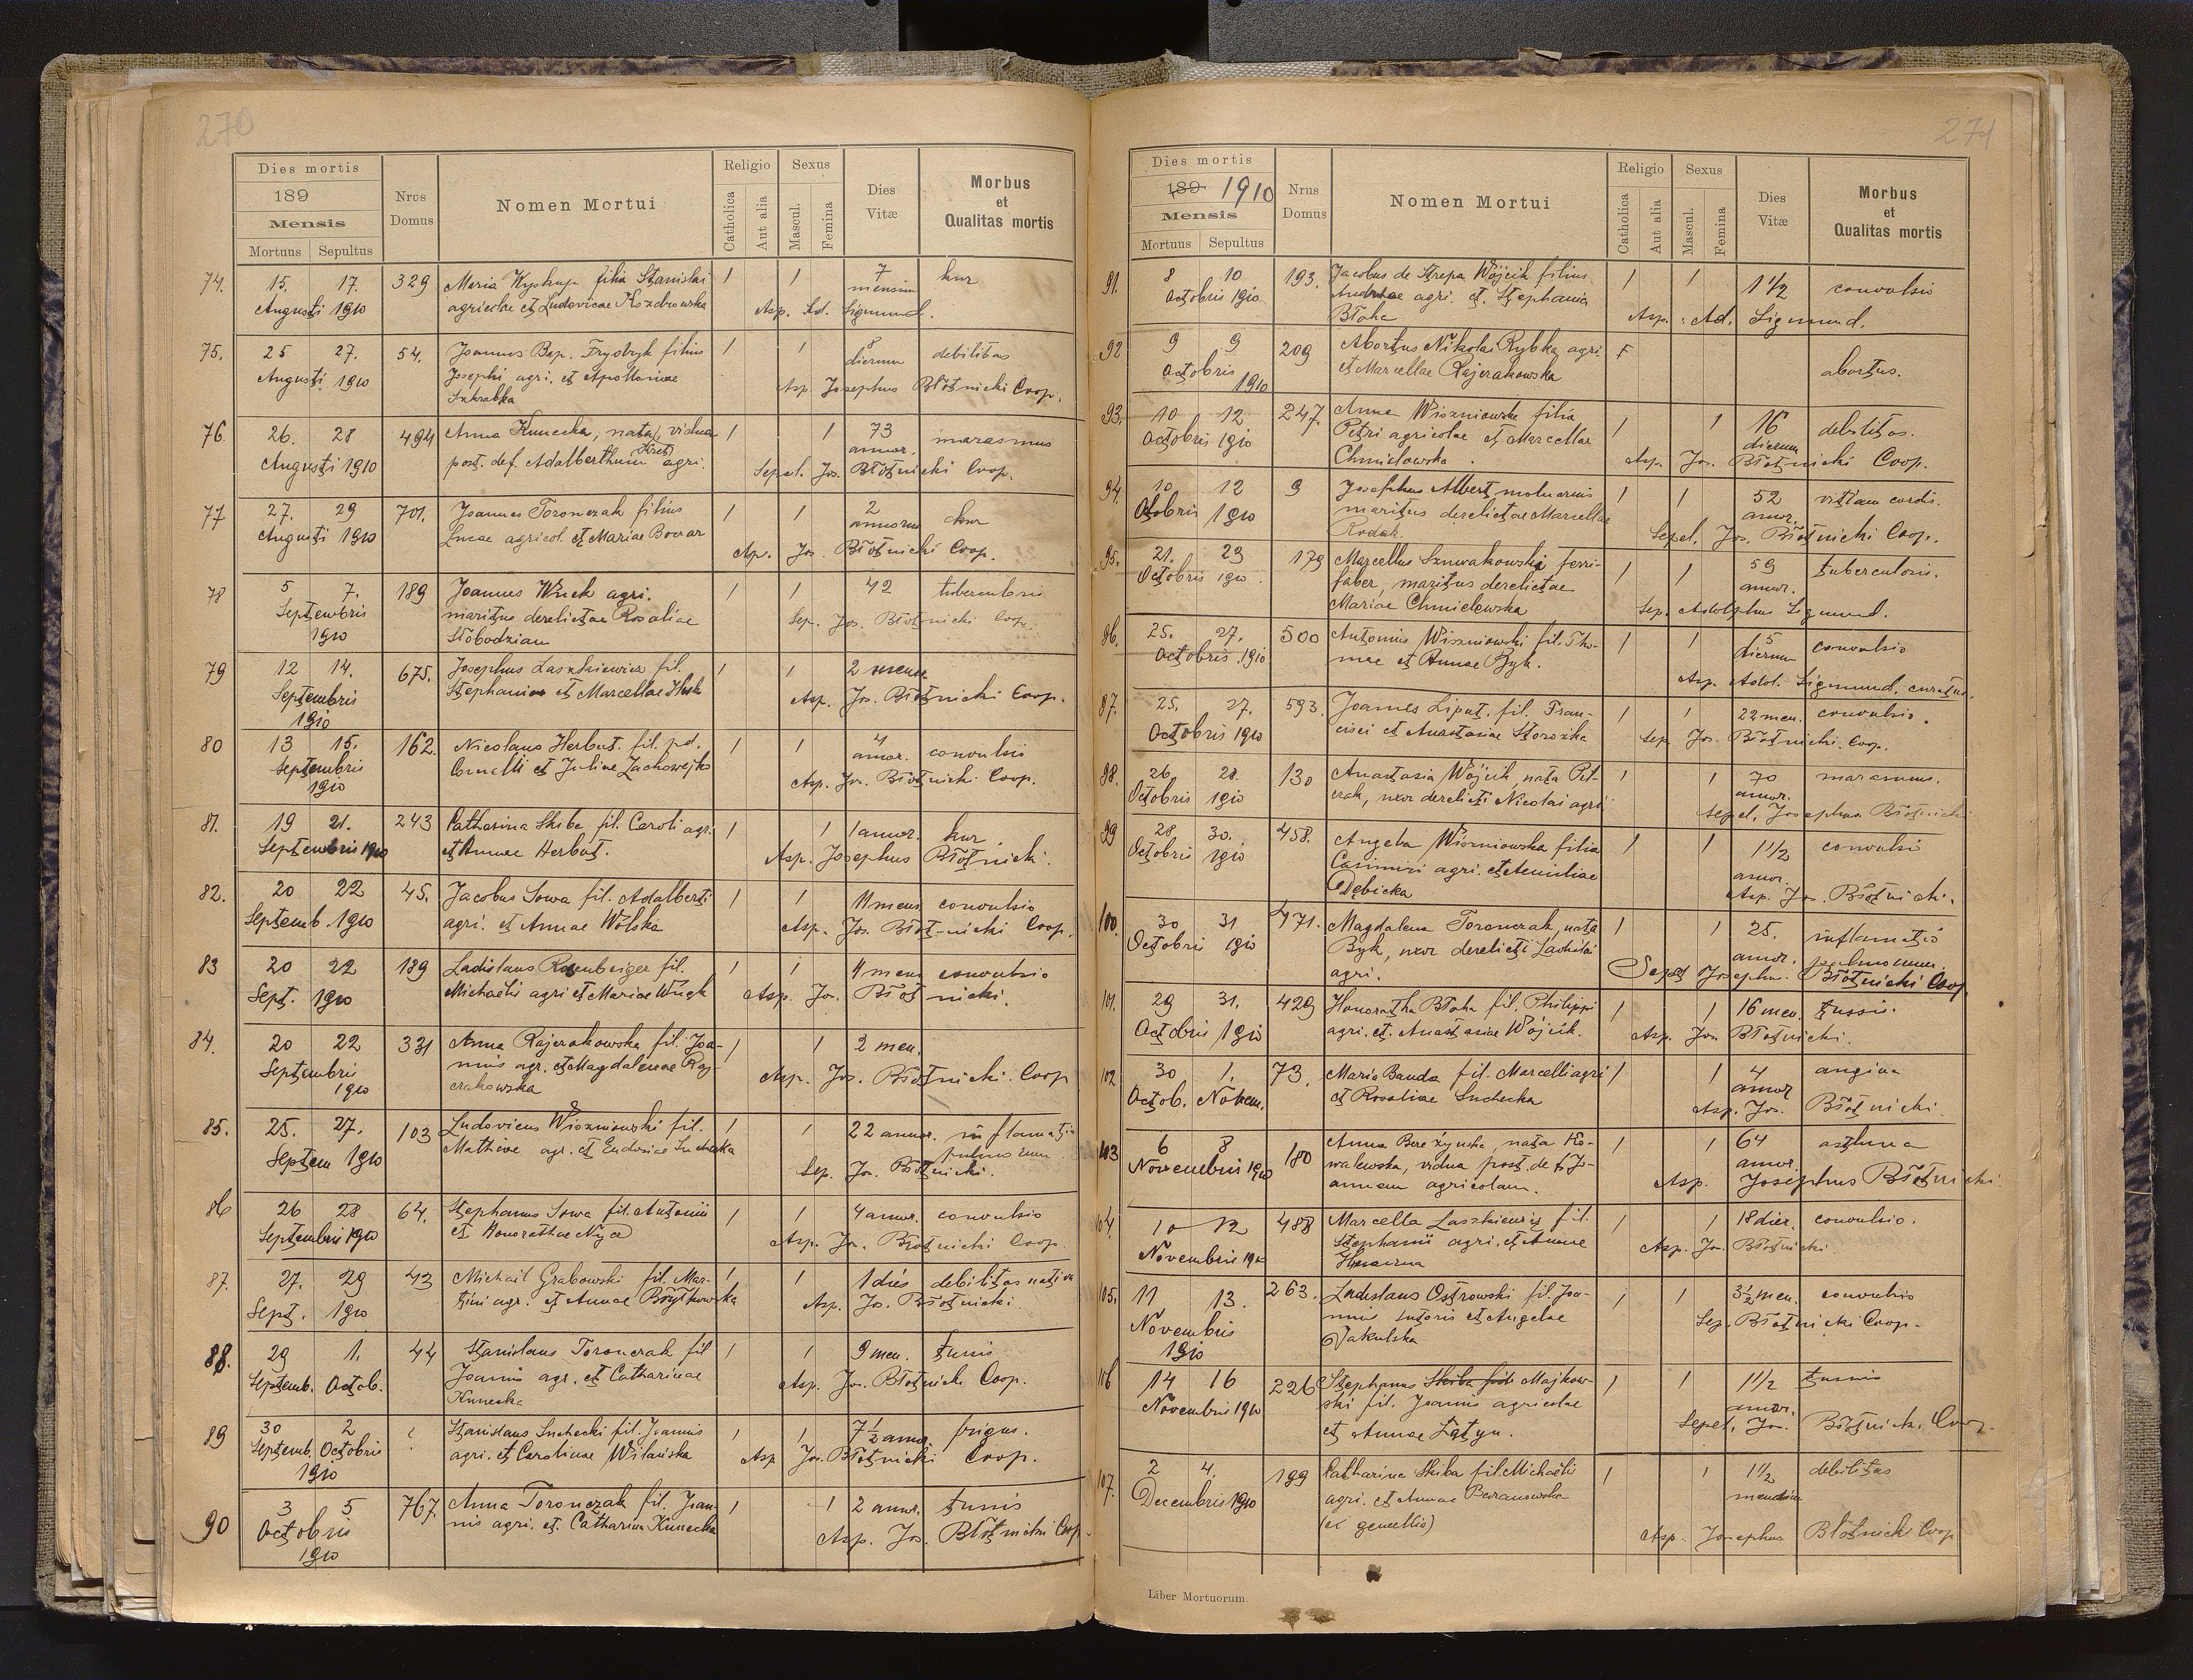 270
Dies mortis
189
Mensis
Mortuus Sepultus
Nrus Domus
Nomen Mortui
Religio
Catholica
Aut alia
Sexus
Mascul.
Femina
Dies Vitæ
Morbus
et
Qualitas mortis
74. 15. 17. 329 Maria filia Stanislai 1 1 7
Augusti 1910 agricolae et Ludovicae mensium
Asp. Ad. Sigmund.
75. 25 27. 54. Joannes Bap. Frydryk filius 1 1 8 debilitas
Augusti 1910 Josephi agri. et Apolloniae dierum
Asp Josephus Błotnicki Coop.
76. 26. 28 494 Anna Kunecka, nata Kret, vidua 1 1 73 marasmus
Augusti 1910 post. def. Adalberthum agri. annor.
Sepel. Jos. Błotnicki Coop.
77 27. 29 701. Joannes Toronczak filius 1 1 2
Augusti 1910 Lucae agricol. et Mariae annorum
Asp. Jos. Błotnicki Coop.
78 5 7. 189 Joannes agri. 1 1 42
Septembris maritus derelictae Rosaliae Sep. Jos. Błotnicki Coop.
1910 Słobodzian
79 12 14. 675. Josephus Laszkiewicz fil. 1 1 2
Septembris et Marcellae Asp. Jos. Błotnicki Coop.
1910
80 13 15. 162. Nicolaus Herbut. fil. 1 1 4 convulsio
Septembris Cornelli et Juliae annor.
1910 Asp. Jos. Błotnicki Coop.
81. 19 21. 243 Catharina Skiba fil. Caroli agri. 1 1 1 annor.
Septembris 1910 et Annae Herbut. Asp. Josephus Błotnicki.
82. 20 22 45. Jacobus Sowa fil. Adalberti 1 1 11 mens convulsio
Septemb. 1910 agri. et Annae Wolska Asp. Jos. Błotnicki Coop.
83 20 22 189 Ladislaus Rosenberger fil. 1 1 mens convulsio
Sept. 1910 Michaelis agri et Mariae Asp. Jos. Błotnicki.
84. 20 22 331 Anna Rajzrakowska fil. Joa- 1 1 2 men.
Septembris nnis agr. et Magdalenae Raj-
1910 zrakowska Asp. Jos. Błotnicki Coop
85. 25. 27. 103 Ludovicus Wiszniowski fil. 1 1 22 annor. inflamatio
Septem 1910 agr. et Eudoxiae Suchecka pulmonum
Sep. Jos. Błotnicki.
86 26 28 64. Stephanus Sowa fil. Antonii 1 1 4 annor. convulsio
Septembris 1910 et Honorathae Asp. Jos. Błotnicki Coop.
87. 27. 29 43 Michael Grabowski fil. Mar- 1 1 1 dies debilitas nativa
Sept. 1910 tini agr. et Annae Asp. Jos. Błotnicki
88. 29 1. 44 Stanislaus Toronczak fil 1 1 9 men. tussis
Septemb. Octob. Joannis agr. et Catharinae Asp. Jos. Błotnicki Coop.
Kunecka
89 30 2 ? Stanislaus Suchecki fil. Joannis 1 1 7½ annor. frigus.
Septemb. Octobris agri. et Carolinae Wilańska Asp Jos. Błotnicki Coop.
1910
90 3 5 767 Anna Toronczak fil. Joan- 1 1 2 annor. tussis
Octobris nis agri. et. Catharina Kunecka Asp. Jos. Błotnicki Coop
1910
271
Dies mortis
189 1910
Mensis
Mortuus Sepultus
Nrus Domus
Nomen Mortui
Religio
Catholica
Aut alia
Sexus
Mascul.
Femina
Dies Vitæ
Morbus
et
Qualitas mortis
91. 8 10 193. Jacobus de Strepa Wójcik filius 1 1 1 1/2 convulsio
Octobris 1910 Andreae agri. et. Stephania
Błaha Asp. Ad. Sigmund.
92 9 9 209 Abortus Nikolai Rybka agri
Octobris et Marcellae Rajzrakowska abortus.
1910
93. 10 12 247. Anna Wiszniowska filia 1 1 16 debilitas.
Octobris 1910 Petri agricolae et Marcellae dierum
Chmielowska. Asp. Jos. Błotnicki Coop.
94. 10 12 9 Josephus Albert 1 1 52 vitium cordis.
Octobris 1910 maritus derelictae Marcellae annor.
Rodak. Sepel. Jos. Błotnicki Coop.
95. 21. 23 179 Marcellus ferri- 1 1 59 tuberculosis.
Octobris 1910. faber, maritus derelictae annor.
Mariae Chmielewska Sep. Adolphus Sigmund.
96. 25. 27. 500 Antonius Wiszniowski fil. Tho- 1 1 5 convulsio
Octobris. 1910 mae et Annae Byk. dierum
Asp. Adol. Sigmund. curatus.
97. 25. 27. 593. Joannes Liput. fil. Fran- 1 1 22 men. convulsio.
Octobris 1910 cisci et Anastasiae Storożka Sep. Jos. Błotnicki. Coop.
98. 26. 28. 130 Anastasia Wójcik, nata Pet- 1 1 70 marasmus.
Octobris 1910 rzak, uxor derelicti Nicolai agri annor.
Sepel. Josephus Błotnicki
99 28 30. 458. Angela Wiszniowska filia 1 1 1 1/2 convulsi
Octobris 1910 Casimiri agri. et Aemiliae annor.
Dębicka Asp. Jos. Błotnicki.
100. 30 31 471. Magdalena Toronczak, nata 1 1 25. inflamatio
Octobris 1910 Byk, uxor derelicti Ladislai annor. pulmonum.
agri. Sepel Josephus. Błotnicki Coop.
101. 29 31. 429 Honoratha Błaha fil. Philippi 1 1 16 men. tussis.
Octobris 1910 agri. et. Anastasiae Wójcik. Asp. Jos. Błotnicki.
102 30 1. 73. Maria Banda fil. Marcelli agri 1 1 4 angina
Octob. Novem. et Rosaliae Suchecka annor
Asp. Jos. Błotnicki.
103 6 8 180 Anna Bereżyńska, nata Ko- 1 1 64 asthma
Novembris 1910 walewska, vidua post. def. Jo- annor.
annem agricolam. Asp. Josephus Błotnicki
104. 10 12 488 Marcella Laszkiewicz fil. 1 1 18 dier. convulsio.
Novembris 1910 Stephanii agri. et Annae Asp. Jos. Błotnicki.
105. 11 13. 263. Ladislaus Ostrowski fil. Joa- 1 1 3½ men. convulsio
Novembris nnis sutoris et Angelae Sep. Błotnicki Coop.
1910 Jakulska
106 14 16 226 Stephanus Skiba fil Majkow- 1 1 1 1/2 tussis
Novembris 1910 ski fil. Joannis agricolae annor.
et Annae Łatyn. Sepel. Jos. Błotnicki Coop.
107. 2 4. 199 Catharina Skiba fil. Michaelis 1 1 1 1/2 debilitas
Decembris 1910 agri. et Annae Baranowska mensium
(ex gemellis) Asp. Josephus Błotnicki Coop
Liber Mortuorum.